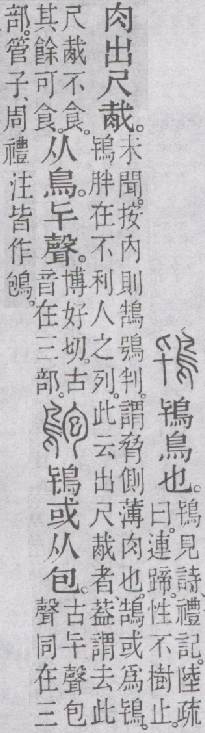 鴇鳥也。
鴇見詩、禮記。陸疏
曰。連蹏。性不樹止。
肉出尺胾。
未聞。按內則鵠鴞判。謂脅側薄肉也。鵠或爲鴇。
鴇胖在不利人之列。此云出尺胾者、葢謂去此
尺胾不食。
其餘可食。
从鳥。𠤏聲。
博好切。古
音在三部。
鴇或从包。
古𠤏聲包
聲同在三
部。管子周禮注皆作䳈。